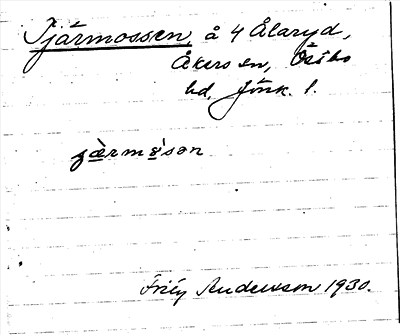 Tjärmossen, å 4 Ålaryd,
Åkers sn, Östbo
hd, Jönk. l.
Fritz Andersson 1930.